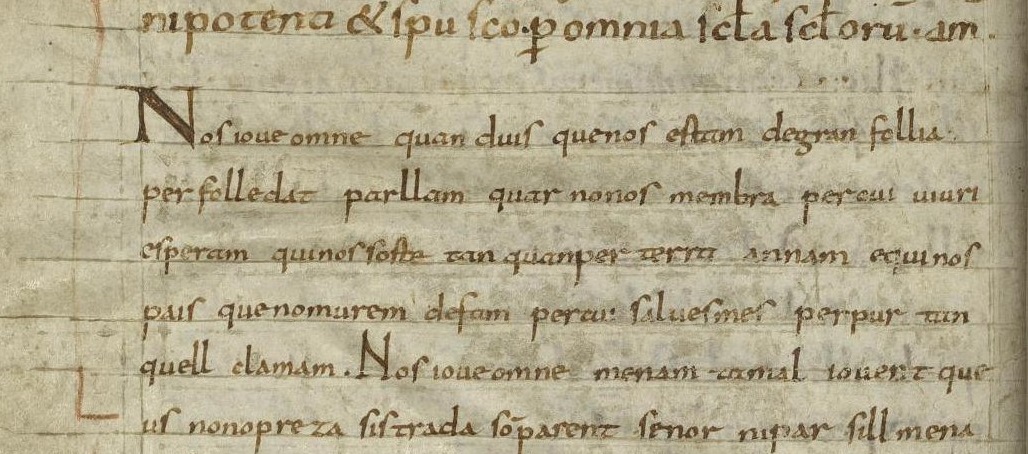 nipotenti & spu sco. p omnia scła scłoru. am.
Nos ioue omne quan dius que nos estam de gran follia
per folledat parllam quar no nos membra per cui uiuri
esperam qui nos soste tan quan per terra annam e qui nos
pais que no murem de fam per cui salues mes per pur tan
quell clamam. Nos ioue omne menam ta mal iouent que
us no no preza sis trada so parent senor ni par sill mena